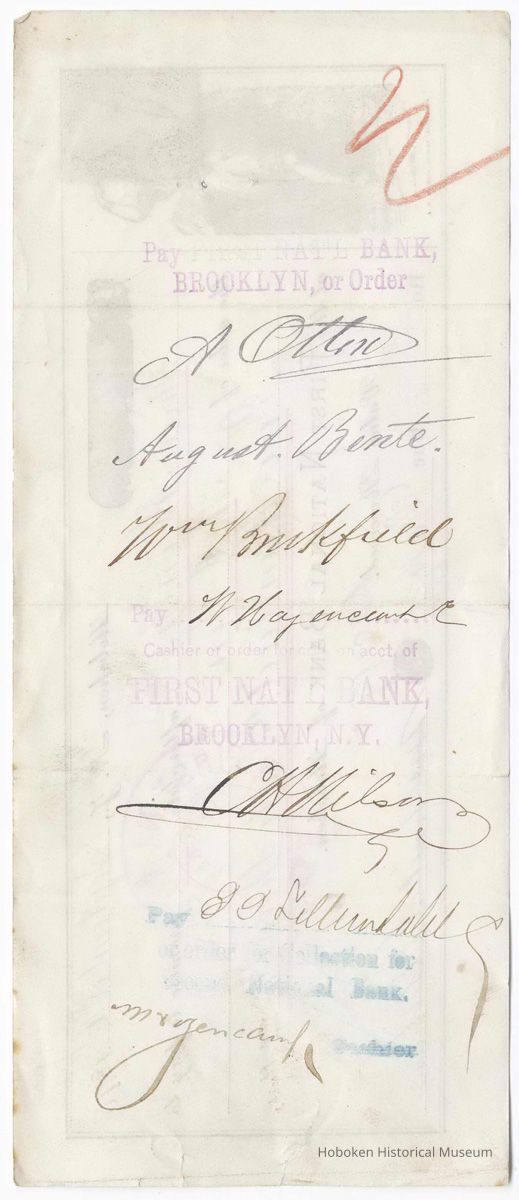 Pay FIRST NAT'L BANK,
BROOKLYN, or Order
A Otten
August. Bente.
Wm Brookfield
Pay W. Hagencamp C
Cashier or order for coll. on acct. of
FIRST NAT'L BANK,
BROOKLYN, N.Y.
C H Wilson
Pay
or order for Collection for
National Bank.
Cashier
Hoboken Historical Museum